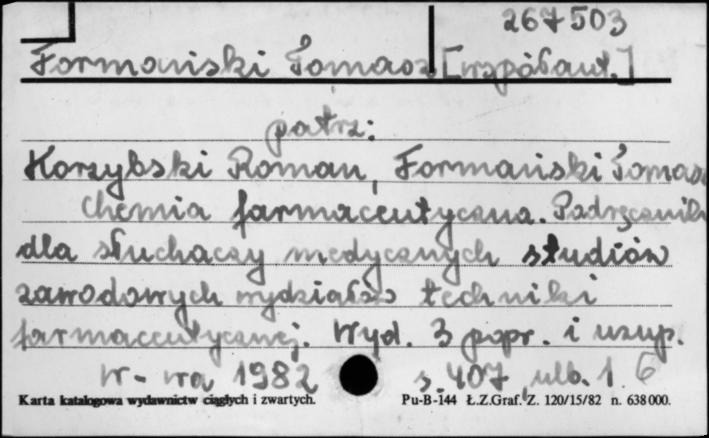 267503
Formański Tomasz [współaut.]
patrz:
Korzybski Roman, Formański Tomasz
Chemia farmaceutyczna. Podręcznik
dla słuchaczy medycznych studiów
zawodowych wydziałów techniki
farmaceutycznej. Wyd. 3 popr. i uzup.
W-wa 1982 s. 407, ulb. 1 6
Karta katalogowa wydawnictw ciągłych i zwartych. Pu-B-144 Ł.Z.Graf. Z. 120/15/82 n. 638000.